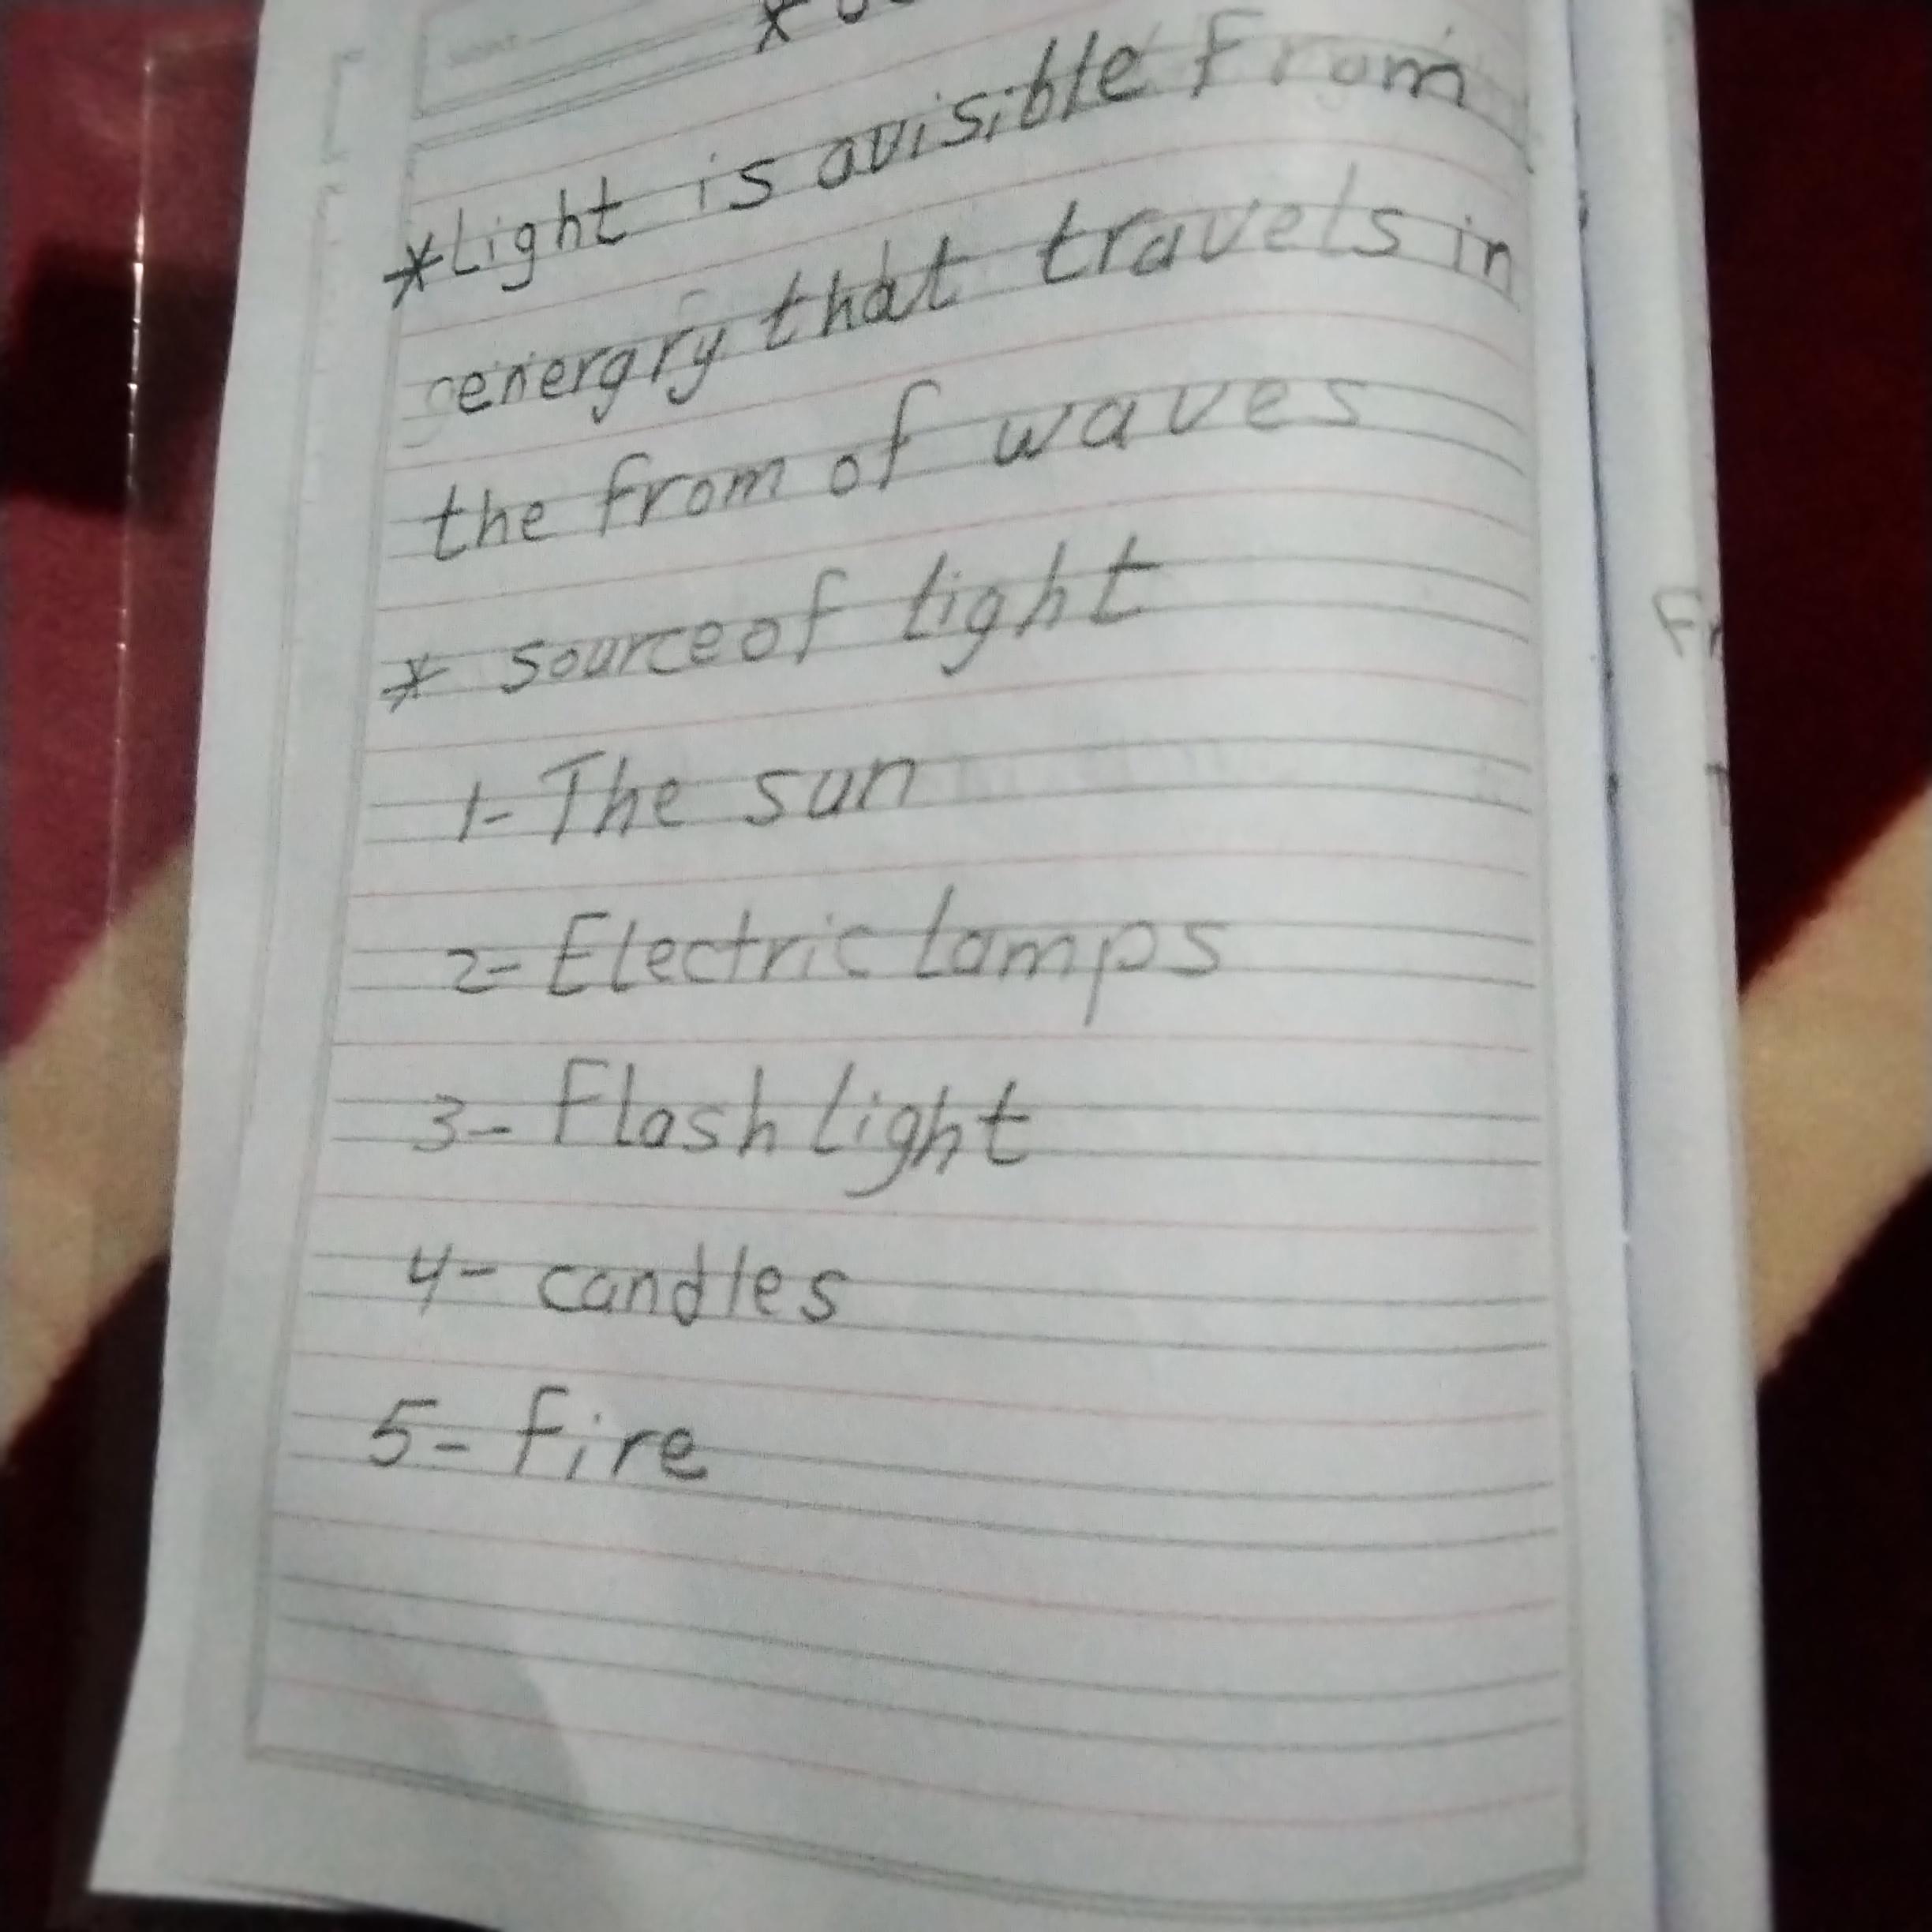 *Light is avisible From
energry that travels in
the from of waves
* source of light
1- The sun
2- Electric lamps
3- Flash light
4- candles
5- fire